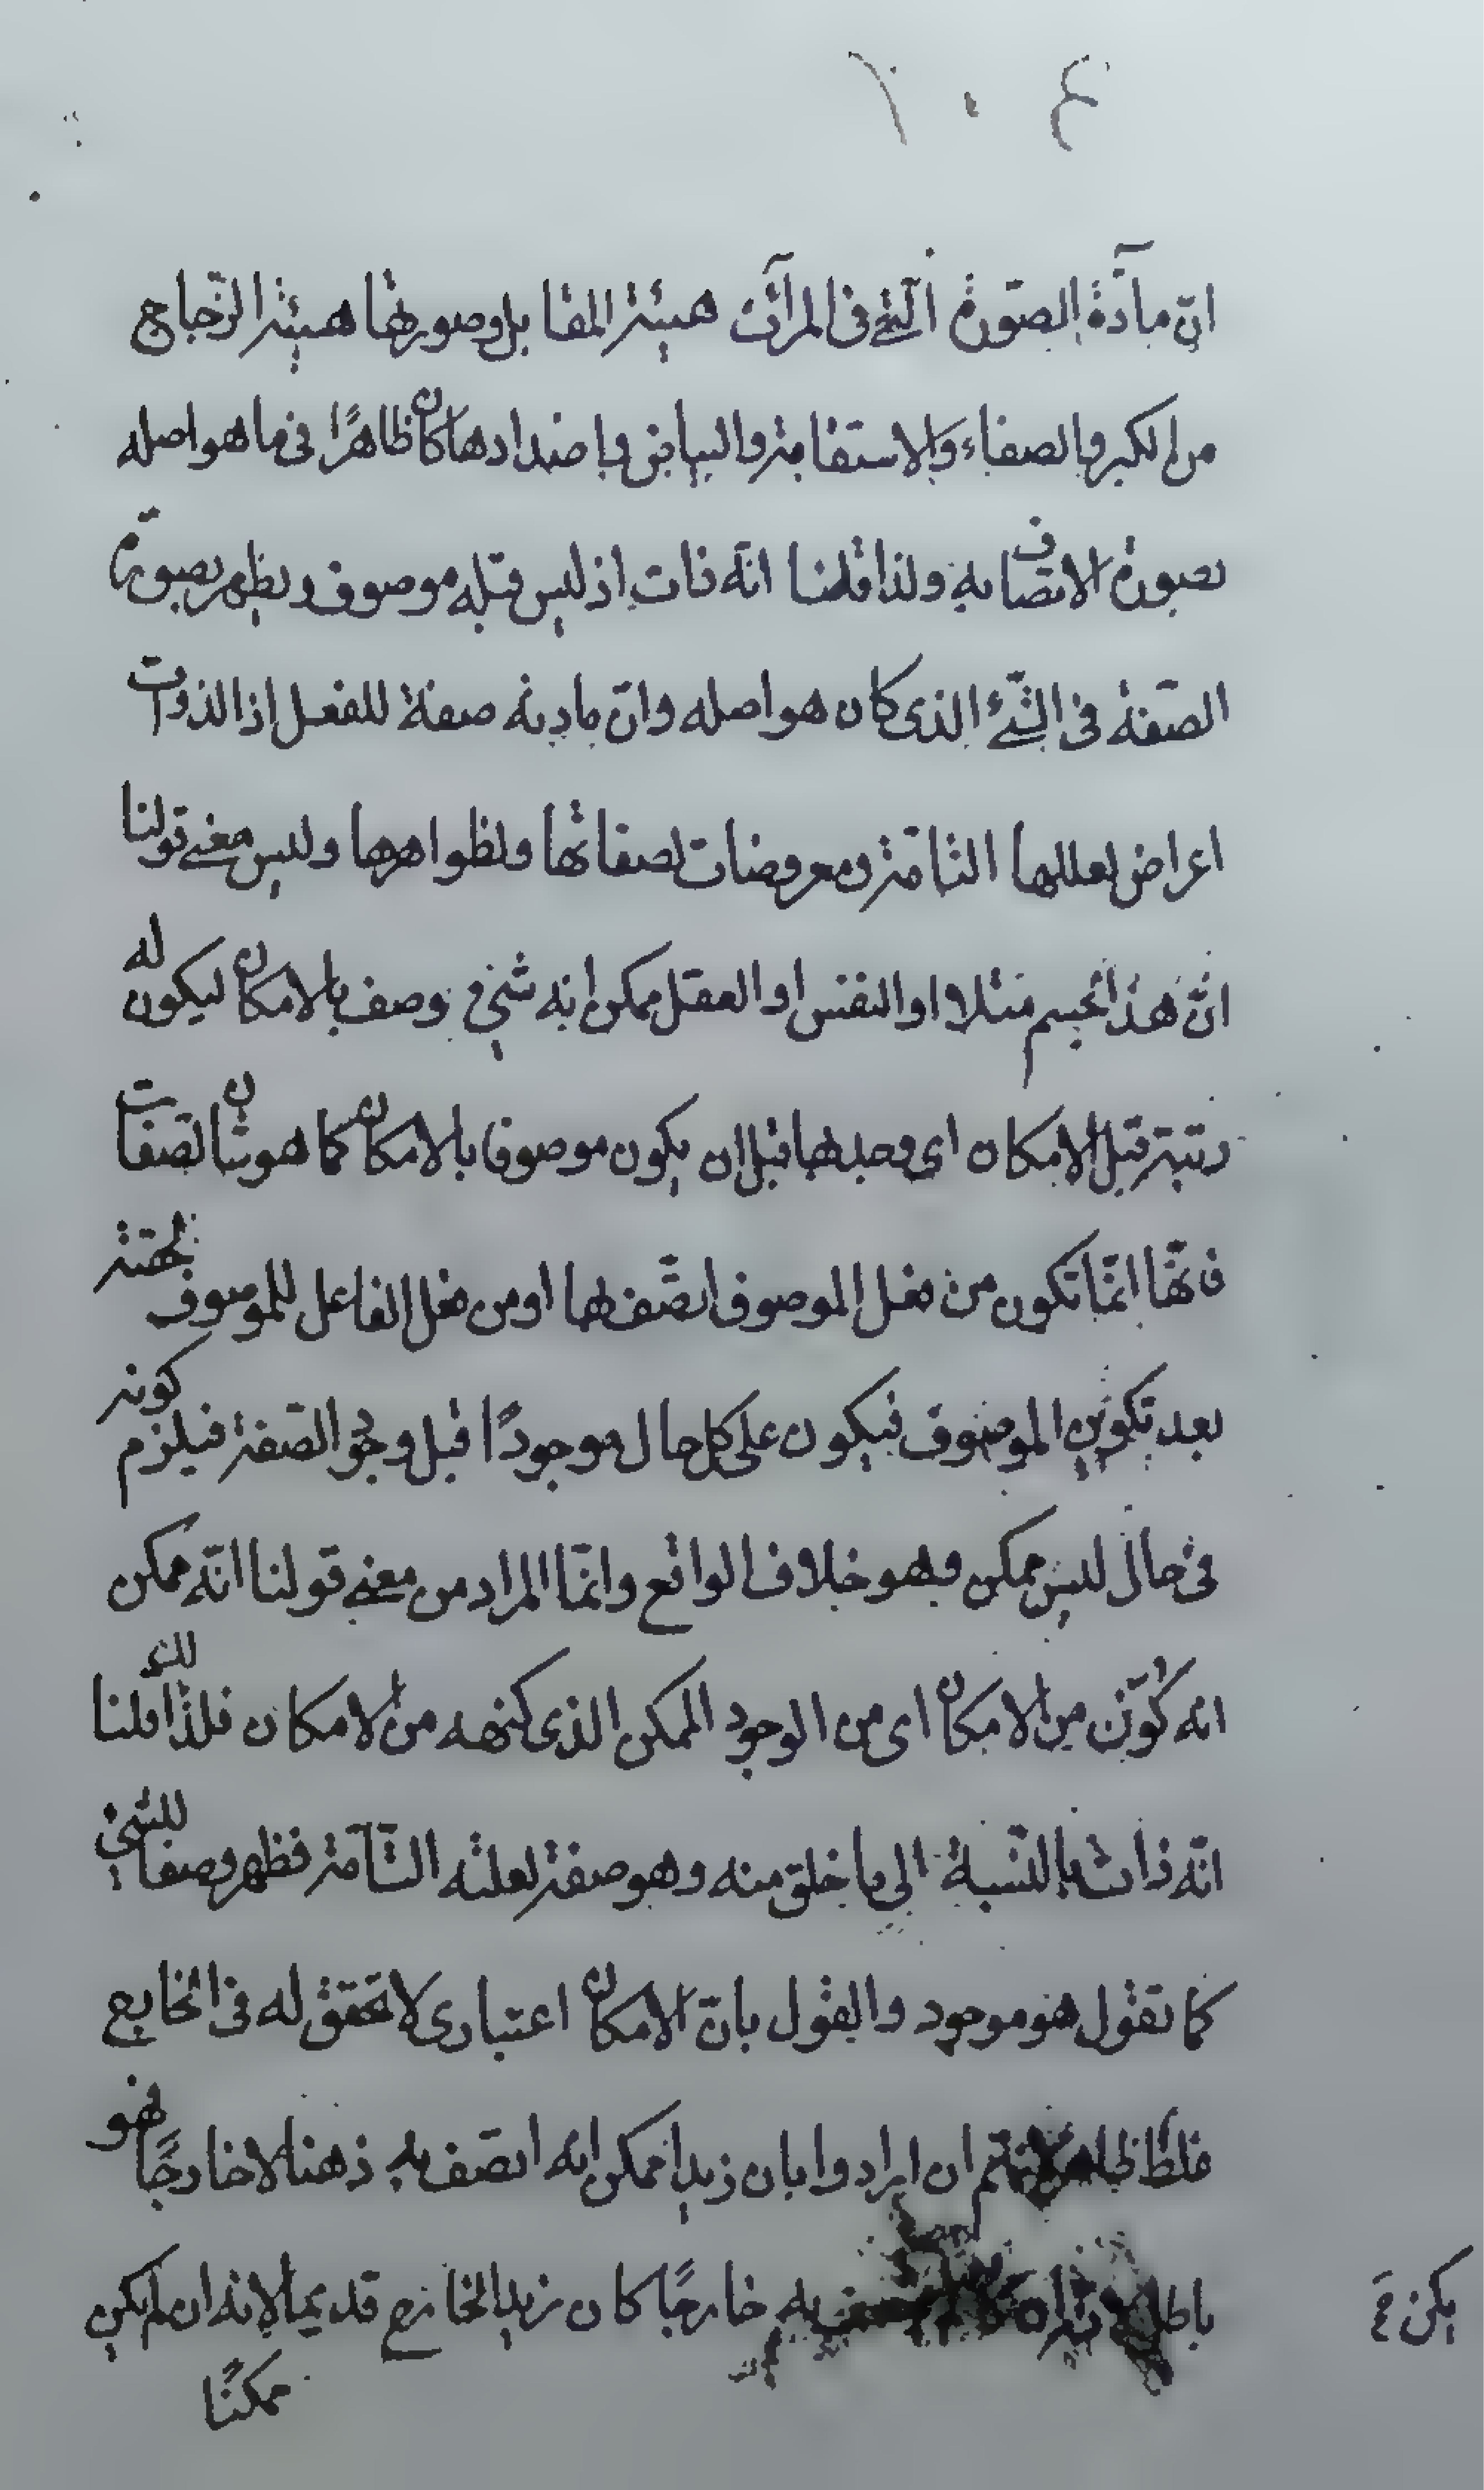 ١٠٤
انّ مآدّة الصّورة الّتي فى المرآت هيئة المقابل وصورتها هيئة الزّجاج
من الكبر والصفاء والاستقامة والبياض واضدادها كان ظاهرًا فى ما هو اصله
بصورة الاتصاف به ولذا قلنا انّه ذات اذ ليس قبله موصوف ويظهر بصورة
الصّفة فى الشّئ الذى كان هو اصله وانّ مادته صفة للفعل اذ الذوات
اعراض لعللها التامة ومعروضات لصفاتها ولظواهرها وليس معنى قولنا
انّ هذا الجسم مثلا او النفس او العقل ممكن انه شئ وصف بالامكان ليكون له
رتبة قبل الامكان اى وجد بها قبل ان يكون موصوفا بالامكان كما هو شان الصفات
فانّها انّما تكون من فعل الموصوف اتّصف بها او من فعل الفاعل للموصوف لحقته
بعد تكوين الموصوف فيكون على كل حال موجودًا قبل وجود الصّفة فيلزم كونه
فى حال ليس بممكن وهو خلاف الواقع وانّما المراد من معنى قولنا انّه ممكن
انه كُوّن من الامكان اى من الوجود الممكن الذى كنهه من الامكان فلذلك قلنا
انّه ذات بالنّسبة الى ما خلق منه وهو صفة لعلته التّآمّة فظهر وصفا للشئ
كما تقول هو موجود والقول بانّ الامكان اعتبارى لا تحقق له فى الخارج
غلط ظاهر ان ارادوا بان زيدا ممكن انه اتصف به ذهنا لا خارجًا فهو
باطل به خارجًا كان زيد الخارج قديما لانه ان لم يكن
يكن خ
ممكنًا